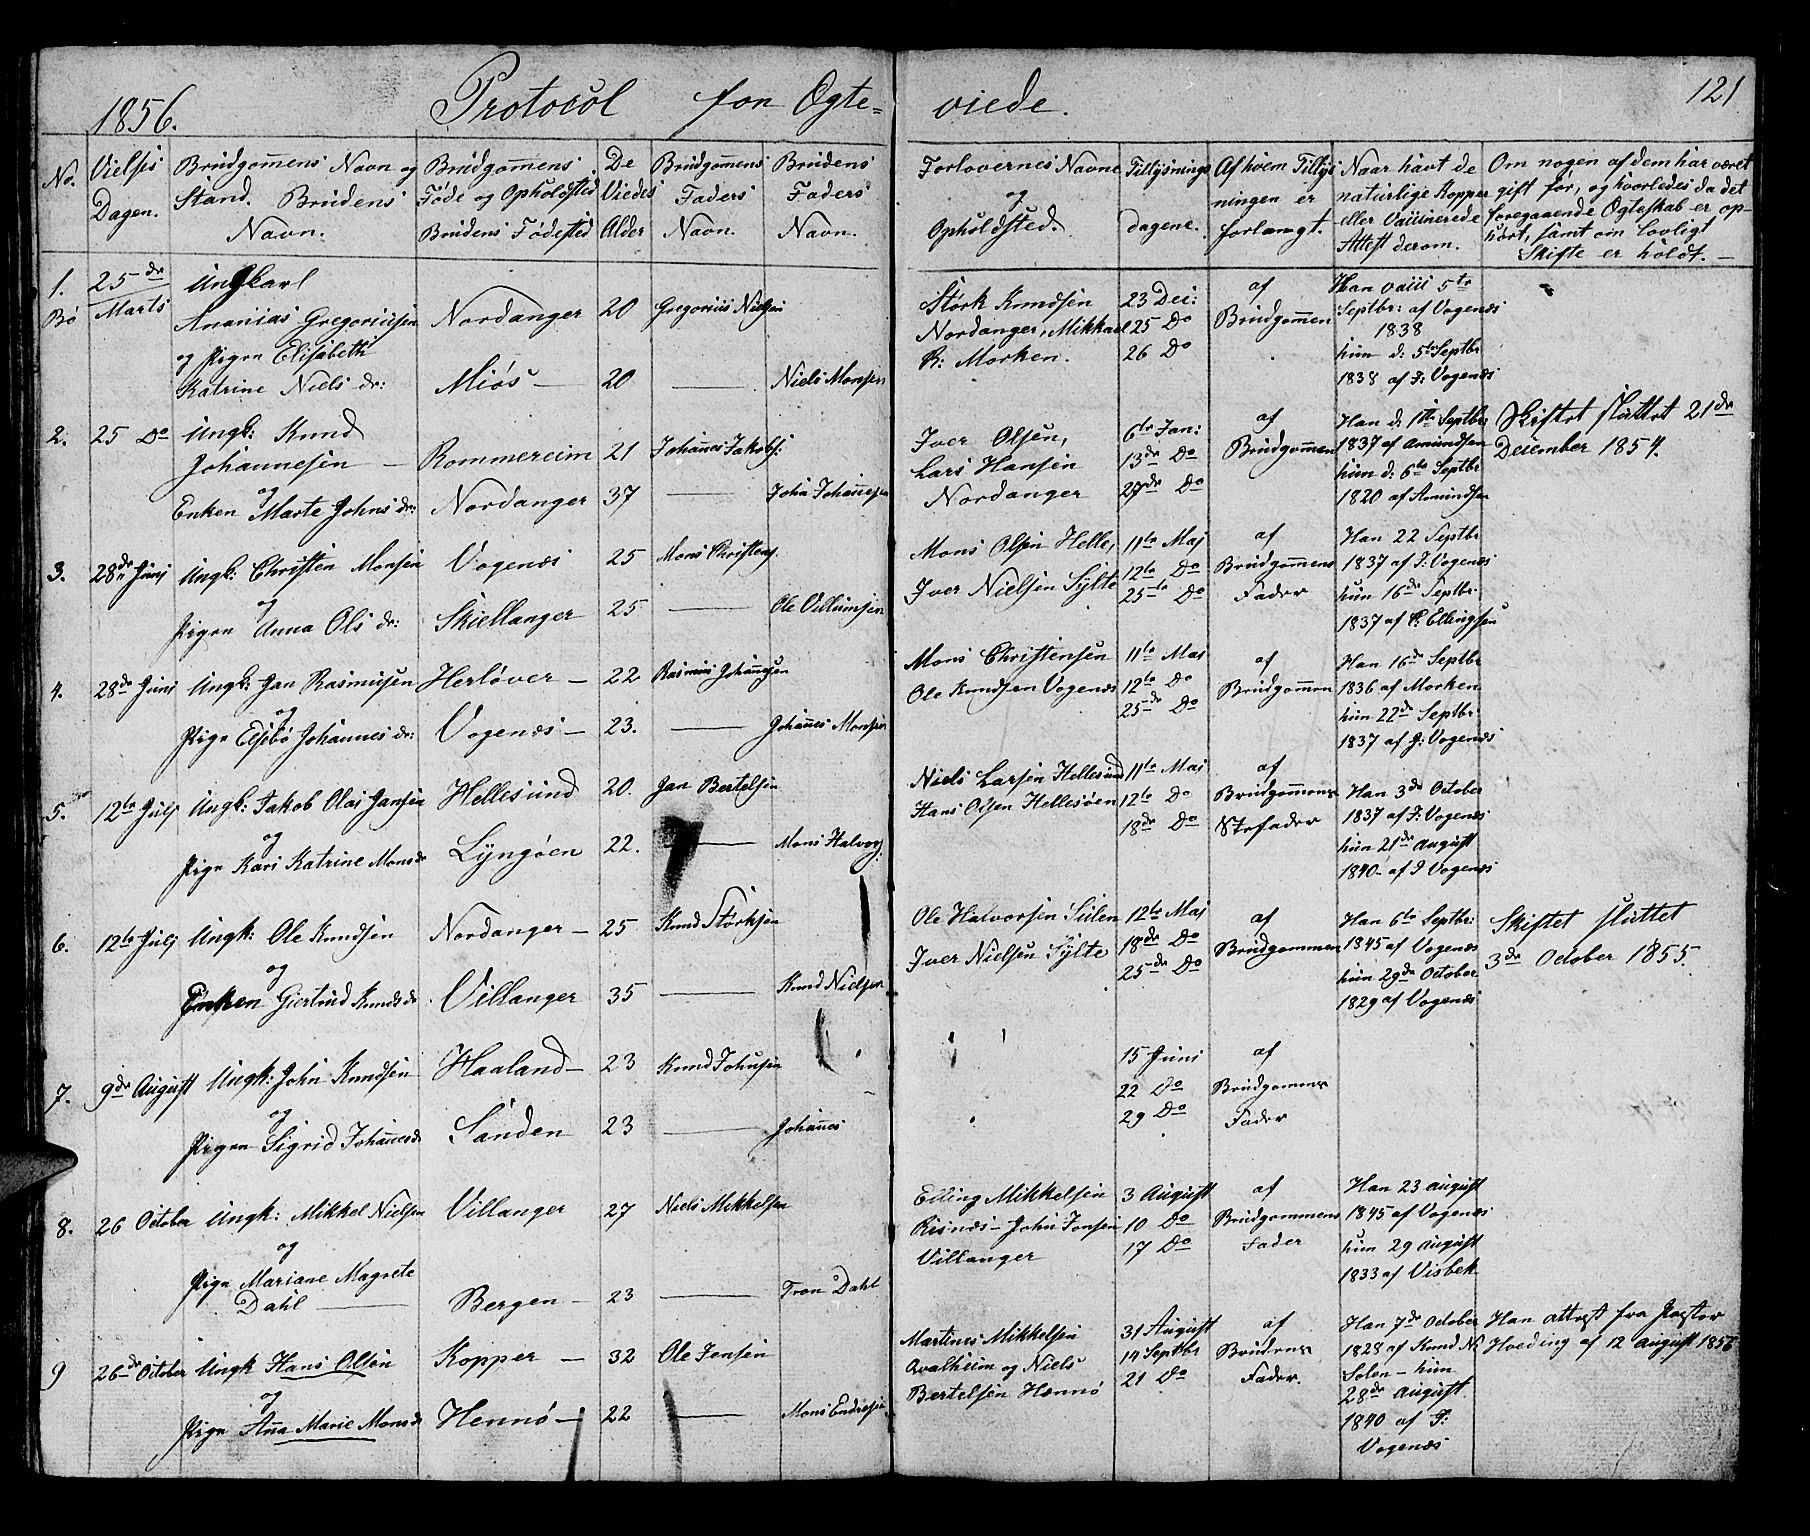 1856. Protocol for Ogte=viede. 121
No. Vielses Dagen. Brudgomens Navn og Stand. Brudens Navn. Brudgomens Føde og Opholdsted Brudens Fødested De Viedes Alder Brudgomens Faders Navn. Brudens Faders Navn. Forlovernes Navne og Opholdsted. Tillysnings dagene. Af hvem Tillysningen er forlangt. Naar havt de naturlige Kopper eller Vaccinerede Attest derom. Om nogen af dem har været gift før, og hvorledes da det foregaaende Ogteskab er ophørt, samt om lovligt Skifte er holdt.
1. 25de Ungkarl
Bø Marts Ananias Gregoriussen Nordanger 20 Gregorius Nielsen
og Pigen Elisabeth
Katrine Niels dr: Miøs 20 — Niels Monsen
Størk Knudsen 23 Dec: af Han vacc 5te
Nordanger, Mikkael 25 Do Brudgommen Septbr: af Vogenæs
K: Morken. 26 Do 1838
hun d: 5te Septbr
1838 af J: Vogenæs
2. 25 Do Ungk: Knud
Johannesen — Rommereim 21 Johanes Jakobs:
og
Enken Marte Johns dr: Nordanger 37 — John Johanesen
Iver Olsen, 6te Jan: af Han d. 1te Septbr Skiftet sluttet 21de
Lars Hansen 13de Do Brudgommen 1837 af Amundsen December 1854.
Nordanger 27de Do hun d: 6te Septbr
1820 af Amundsen
3. 28de Junj Ungk: Christen Monsen Vogenæs 25 Mons Christens.
og
Pigen Anna Ols dr: Skiellanger 25 — Ole Villumsen
Mons Olsen Helle, 11te Maj af Han 22 Septbr
Iver Nielsen Sylte 12te Do Brudgommens 1837 af J: Vogenæs
25te Do Fader hun 16de Septbr
1837 af P. Ellingsen
4. 28de Junj Ungk: Jan Rasmusen Herløver — 22 Rasmus Johanesen
og
Pige Elsebø Johannes dr: Vogenæs — 23. — Johanes Monsen
Mons Christensen 11te Maj af Han 16de Septbr
Ole Knudsen Vogenæs 12te Do Brudgommen 1836 af Morken
25de Do hun 22de Septbr
1837 af J: Vogenæs
5. 12te Julj Ungk: Jakob Olai Jansen Hellesund 20. Jan Bertelsen
og
Pige Kari Katrine Monsdr Lyngøen 22. — Mons Halvors:
Niels Larsen Hellesund 11te Maj af
Hans Olsen Hellesøen 12te Do Brudgommens Han 3de October
18de Do Stefader 1837 af J: Vogenæs
hun 21de August
1840 af J Vogenæs
6. 12te Julj Ungk: Ole Knudsen Nordanger — 25 Knud Størksen
og
Enken Giertrud Knudsdr Villanger 35 — Knud Nielsen
Ole Halvorsen Sulen 12te Maj af Han 6te Septbr: Skiftet sluttet
Iver Nielsen Sylte 18de Do Brudgommen 1845 af Vogenæs 3de October 1855.
25de Do hun 29de October
1829 af Vogenæs
7. 9de August Ungk: John Knudsen Haaland — 23 Knud Johnsen
og
Pigen Sigrid Johanesdr Sanden 23 — Johanes
15 Juni af
22 Do Brudgommens
29 Do Fader
8. 26 October Ungk: Mikkel Nielsen Villanger 27 Niels Mikkelsen
og
Pige Mariane Magrete
Dahl — Bergen — 23 — Tron Dahl
Elling Mikkelsen 3 August af Han 23 august
Risnæs — John Jonsen 10 Do Brudgommens 1845 af Vogenæs
Villanger 17 Do Fader hun 29 august
1833 af Visbek
9 26de October Ungk Hans Olsen Kopper — 32 Ole Jensen
og
Pige Ana Marie Monsdr Hennø — 22 — Mons Endresen
Martines Mikkelsen 31 August af Han 7de October Han attest fra Pastor
Qvalheim og Niels 14 Septbr Brudens 1828 af Knud N: Hveding af 12 August 1856
Bertelsen Hennø 21 Do Fader. Solen — hun
28de august
1840 af J:
Vogenæs